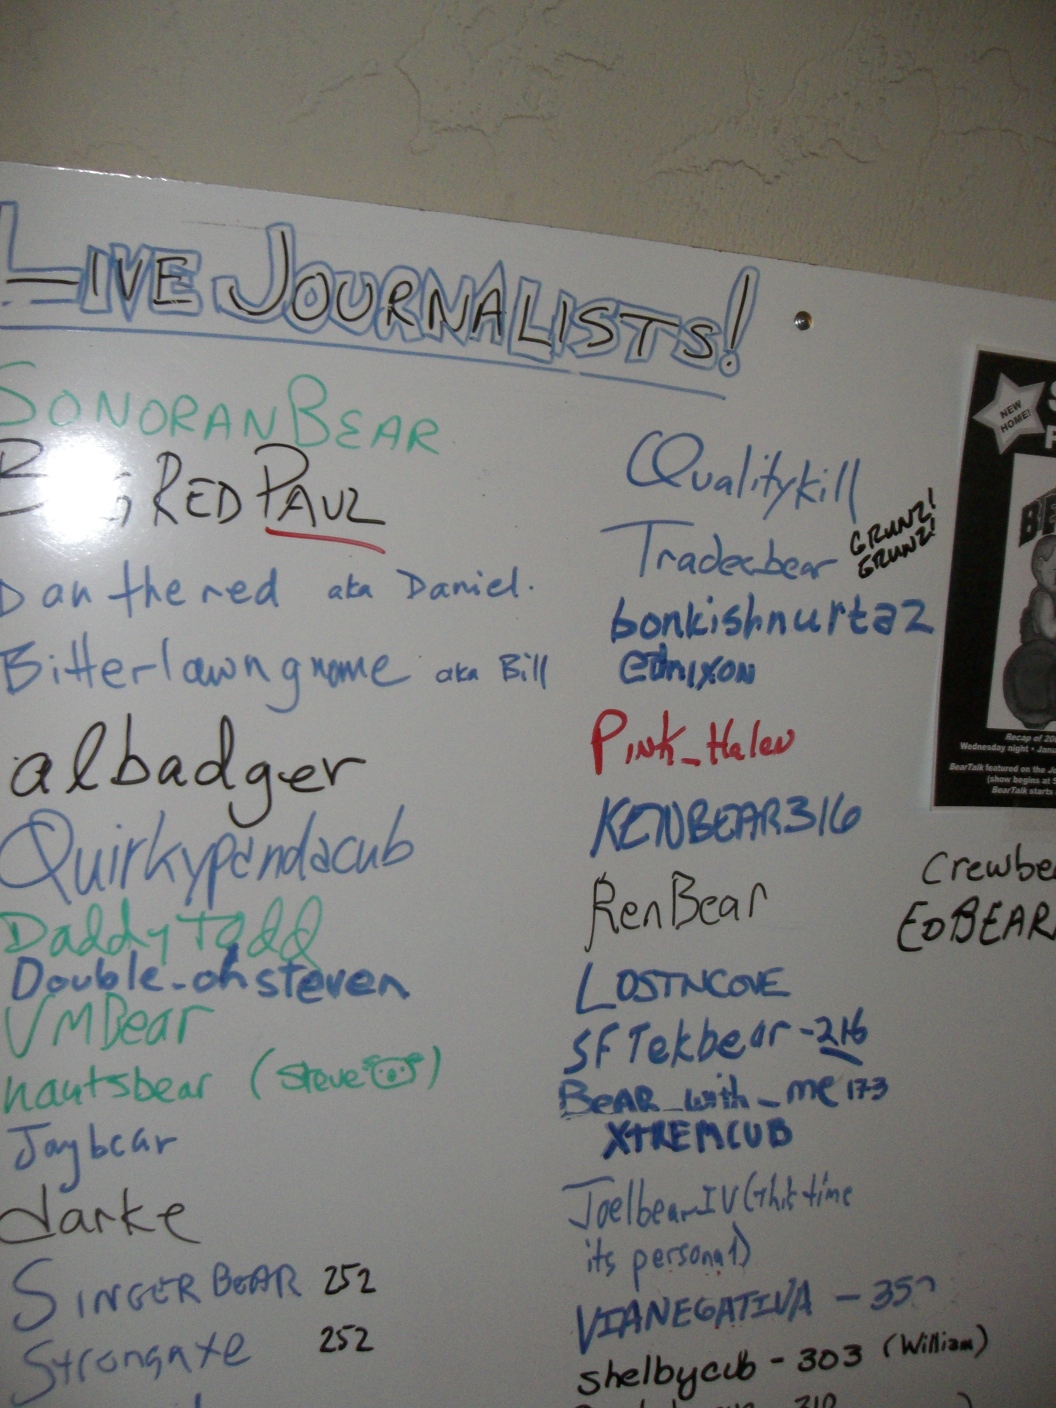 LIVE JOURNALISTS!
SONORANBEAR
BIG RED PAUL
Danthered aka Daniel.
Bitterlawngnome aka Bill
albadger
Quirkypandacub
DaddyTodd
Double-ohsteven
VMBear
nautsbear (Steve)
Jaybear
darke
SINGERBEAR 252
Strongaxe 252
Qualitykill
Tradecbear GRUNZ!
GRUNZ!
bonkishnurtaz
EDNIXON
PINK_Halen
KENBEAR316
RenBear
LOSTNCOVE
SFTekbear - 216
BeAR_with_me 173
XTREMCUB
JoelbearIV (this time
its personal)
VIANEGATIVA -
shelbycub - 303 (William)
310
NEW
HOME!
Recap of
Wednesday night •
BearTalk featured on the
(show begins at
BearTalk starts
EDBEAR